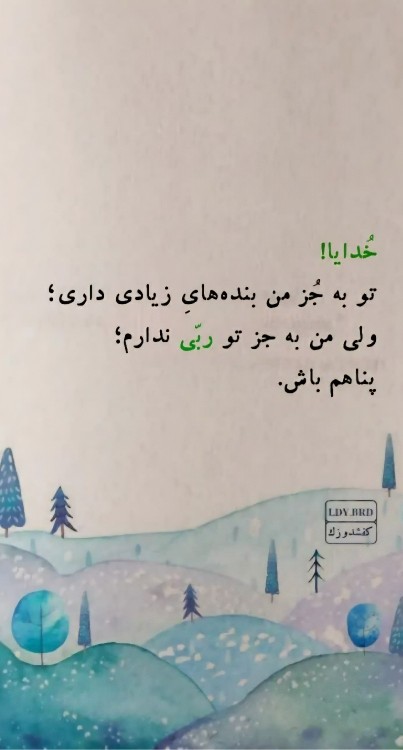 خُدایا!
تو به جُز من بنده‌هایِ زیادی داری؛
ولی من به جز تو ربّی ندارم؛
پناهم باش.
LDY.BRD
کفشدوزك